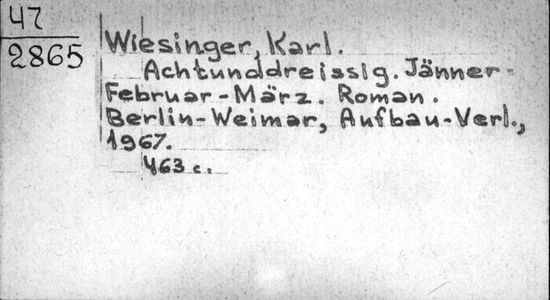 47
2865
Wiesinger, Karl.
Achtunddreissig. Jänner-
Februar-März. Roman.
Berlin-Weimar, Aufbau-Verl.,
1967.
463 c.